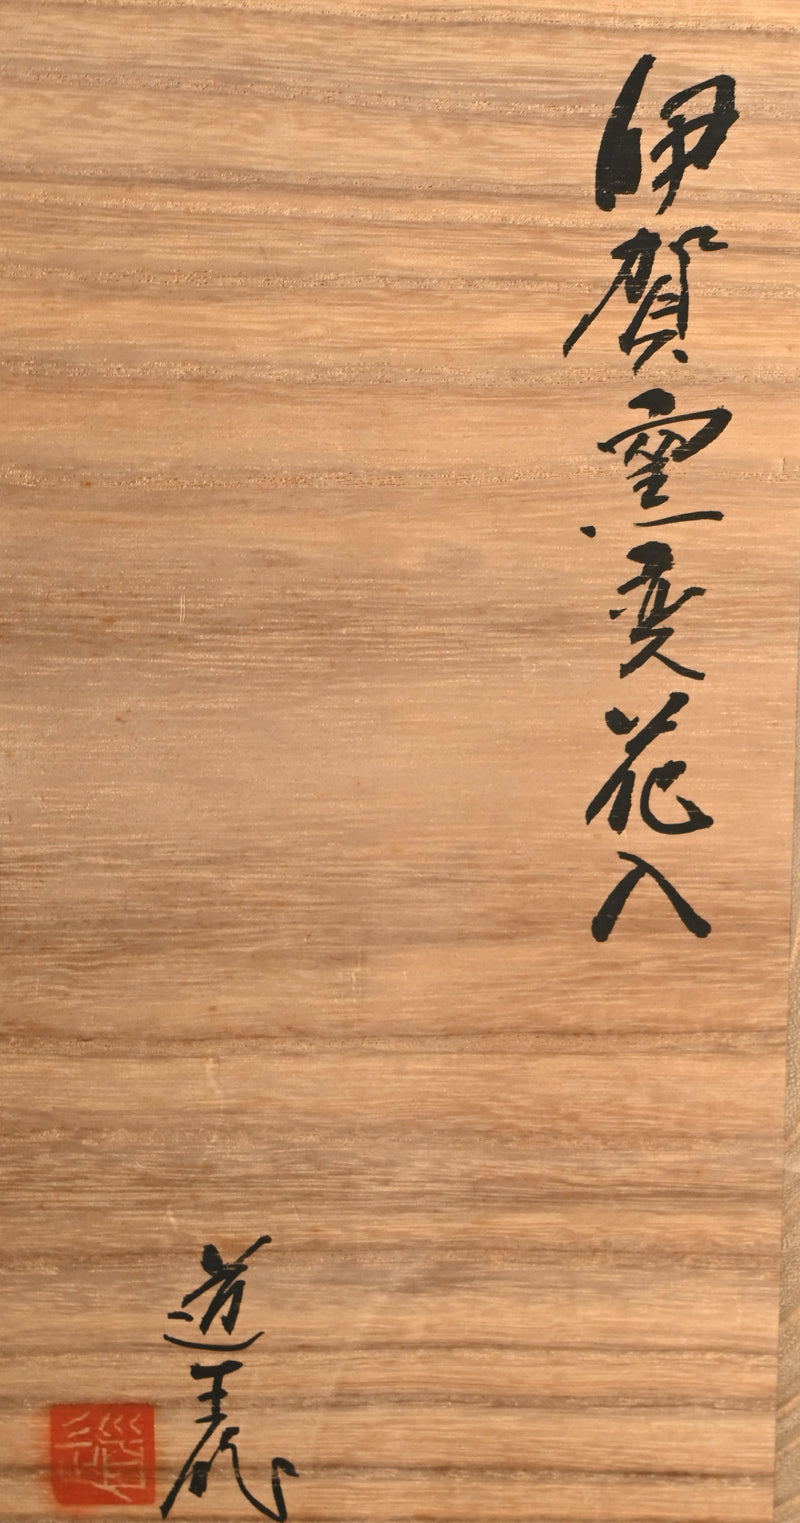 伊賀窯変花入
道義